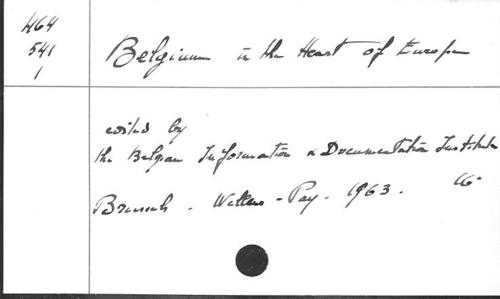 H64
541
1
Belgium in the Heart of Europe
edited by
the Belgian Information & Documentation Institute
Brussels - Wellens - Pay - 1963. 16°